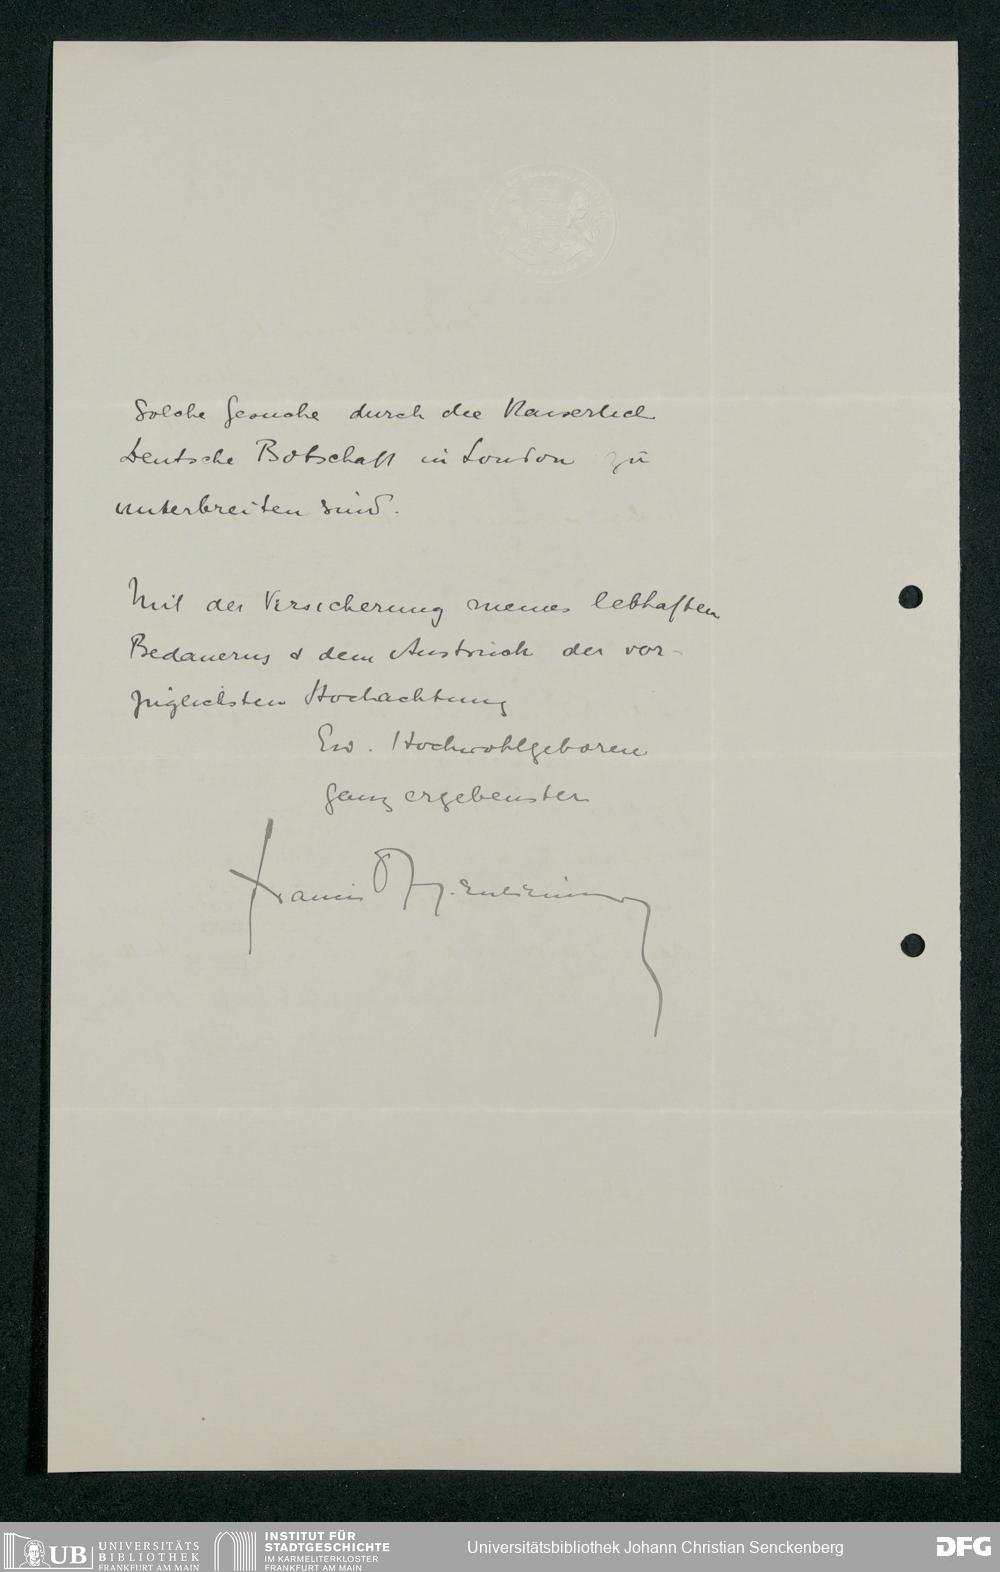 Solche Gesuche durch die Kaiserlich
Deutsche Botschaft in London zu
unterbreiten sind.
Mit der Versicherung meines lebhaften
Bedauerns & dem Ausdruck der vor-
züglichsten Hochachtung
Ew. Hochwohlgeboren
ganz ergebenster
Francis Oppenheimer
UB UNIVERSITÄTS
BIBLIOTHEK
FRANKFURT AM MAIN
INSTITUT FÜR
STADTGESCHICHTE
IM KARMELITERKLOSTER
FRANKFURT AM MAIN
Universitätsbibliothek Johann Christian Senckenberg
DFG